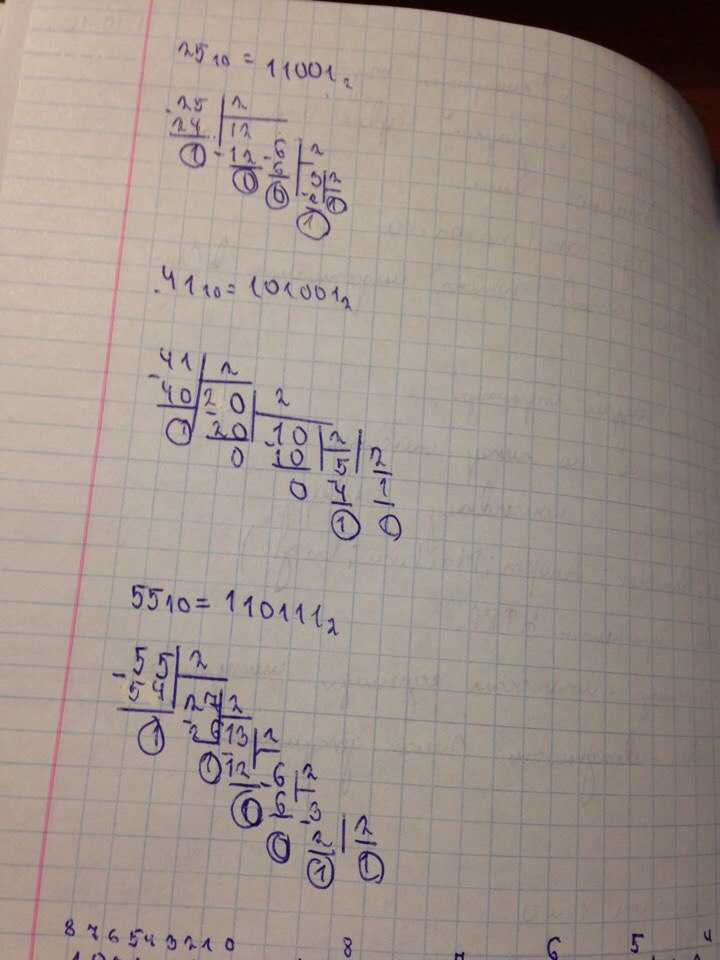 25₁₀ = 11001₂
25 | 2
24 | 12
1 -12 -6 | 2
0 6 3 | 2
0 -2 1
1
41₁₀ = 101001₂
41 | 2
-40 20 | 2
1 -20 -10 | 2
0 10 5 | 2
0 4 1
1
55₁₀ = 110111₂
-55 | 2
54 -27 | 2
1 26 -13 | 2
1 12 -6 | 2
1 6 -3
0 2 | 2
1 1
8 7 6 5 4 3 2 1 0 8 7 6 5 4